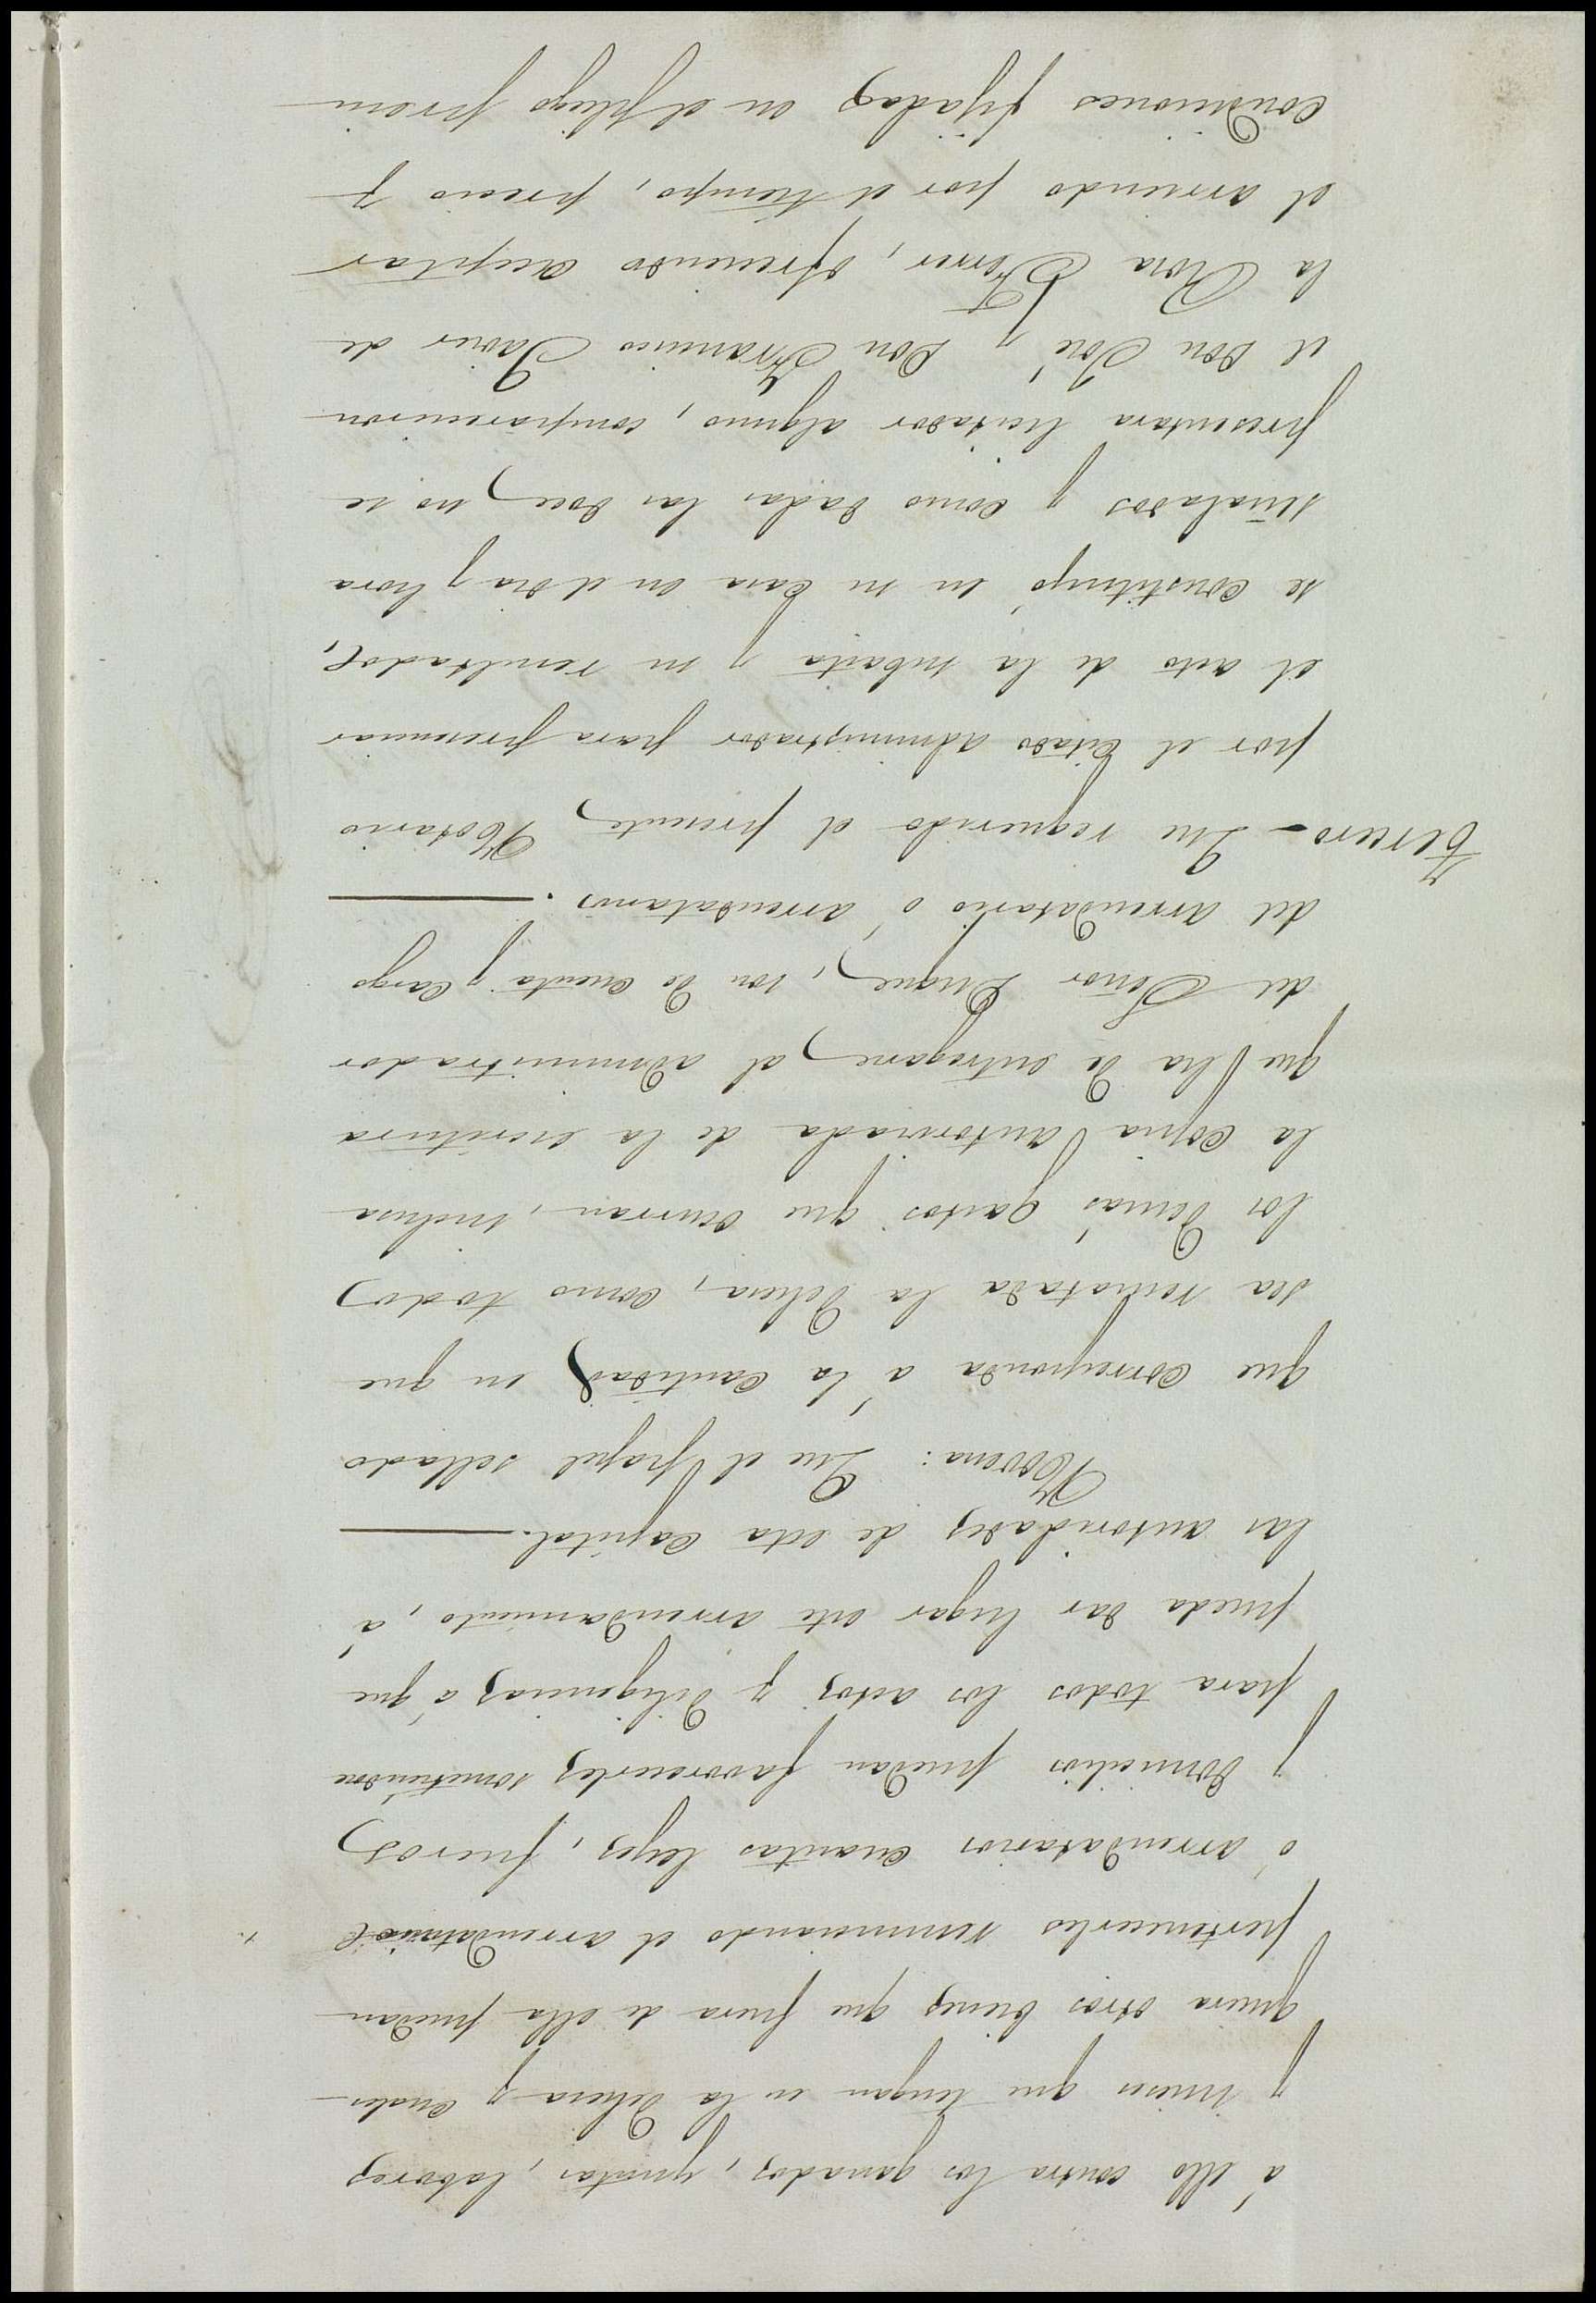 á ello contra los ganados, yuntas, labores
y mieses que tengan en la dehesa y cuales-
quiera otros bienes que fuera de ella puedan
pertenecerles renunciando el arrendatario
ó arrendatarios cuantas leyes, fueros
y domicilios puedan favorecerles sometiendose
para todos los actos y diligencias á que
pueda dar lugar este arrendamiento, á
las autoridades de esta Capital.
Novena: Que el papel sellado
que corresponda á la cantidad en que
sea rematada la dehesa, como todos
los demás gastos que ocurran, inclusa
la copia autorizada de la escritura
que ha de entregarse al administrador
del Señor Duque, son de cuenta y cargo
del arrendatario ó arrendatarios.
Tercero- Que requerido el presente Notario
por el citado administrador para presenciar
el acto de la subasta y su resultado,
se constituyó en su casa en el dia y hora
señalados y como dadas las doce, no se
presentara licitador alguno, comparecieron
el Don José y Don Francisco Javier de
la Mora Ferrer, ofreciendo aceptar
el arriendo por el tiempo, precio y
condiciones fijadas en el pliego prein